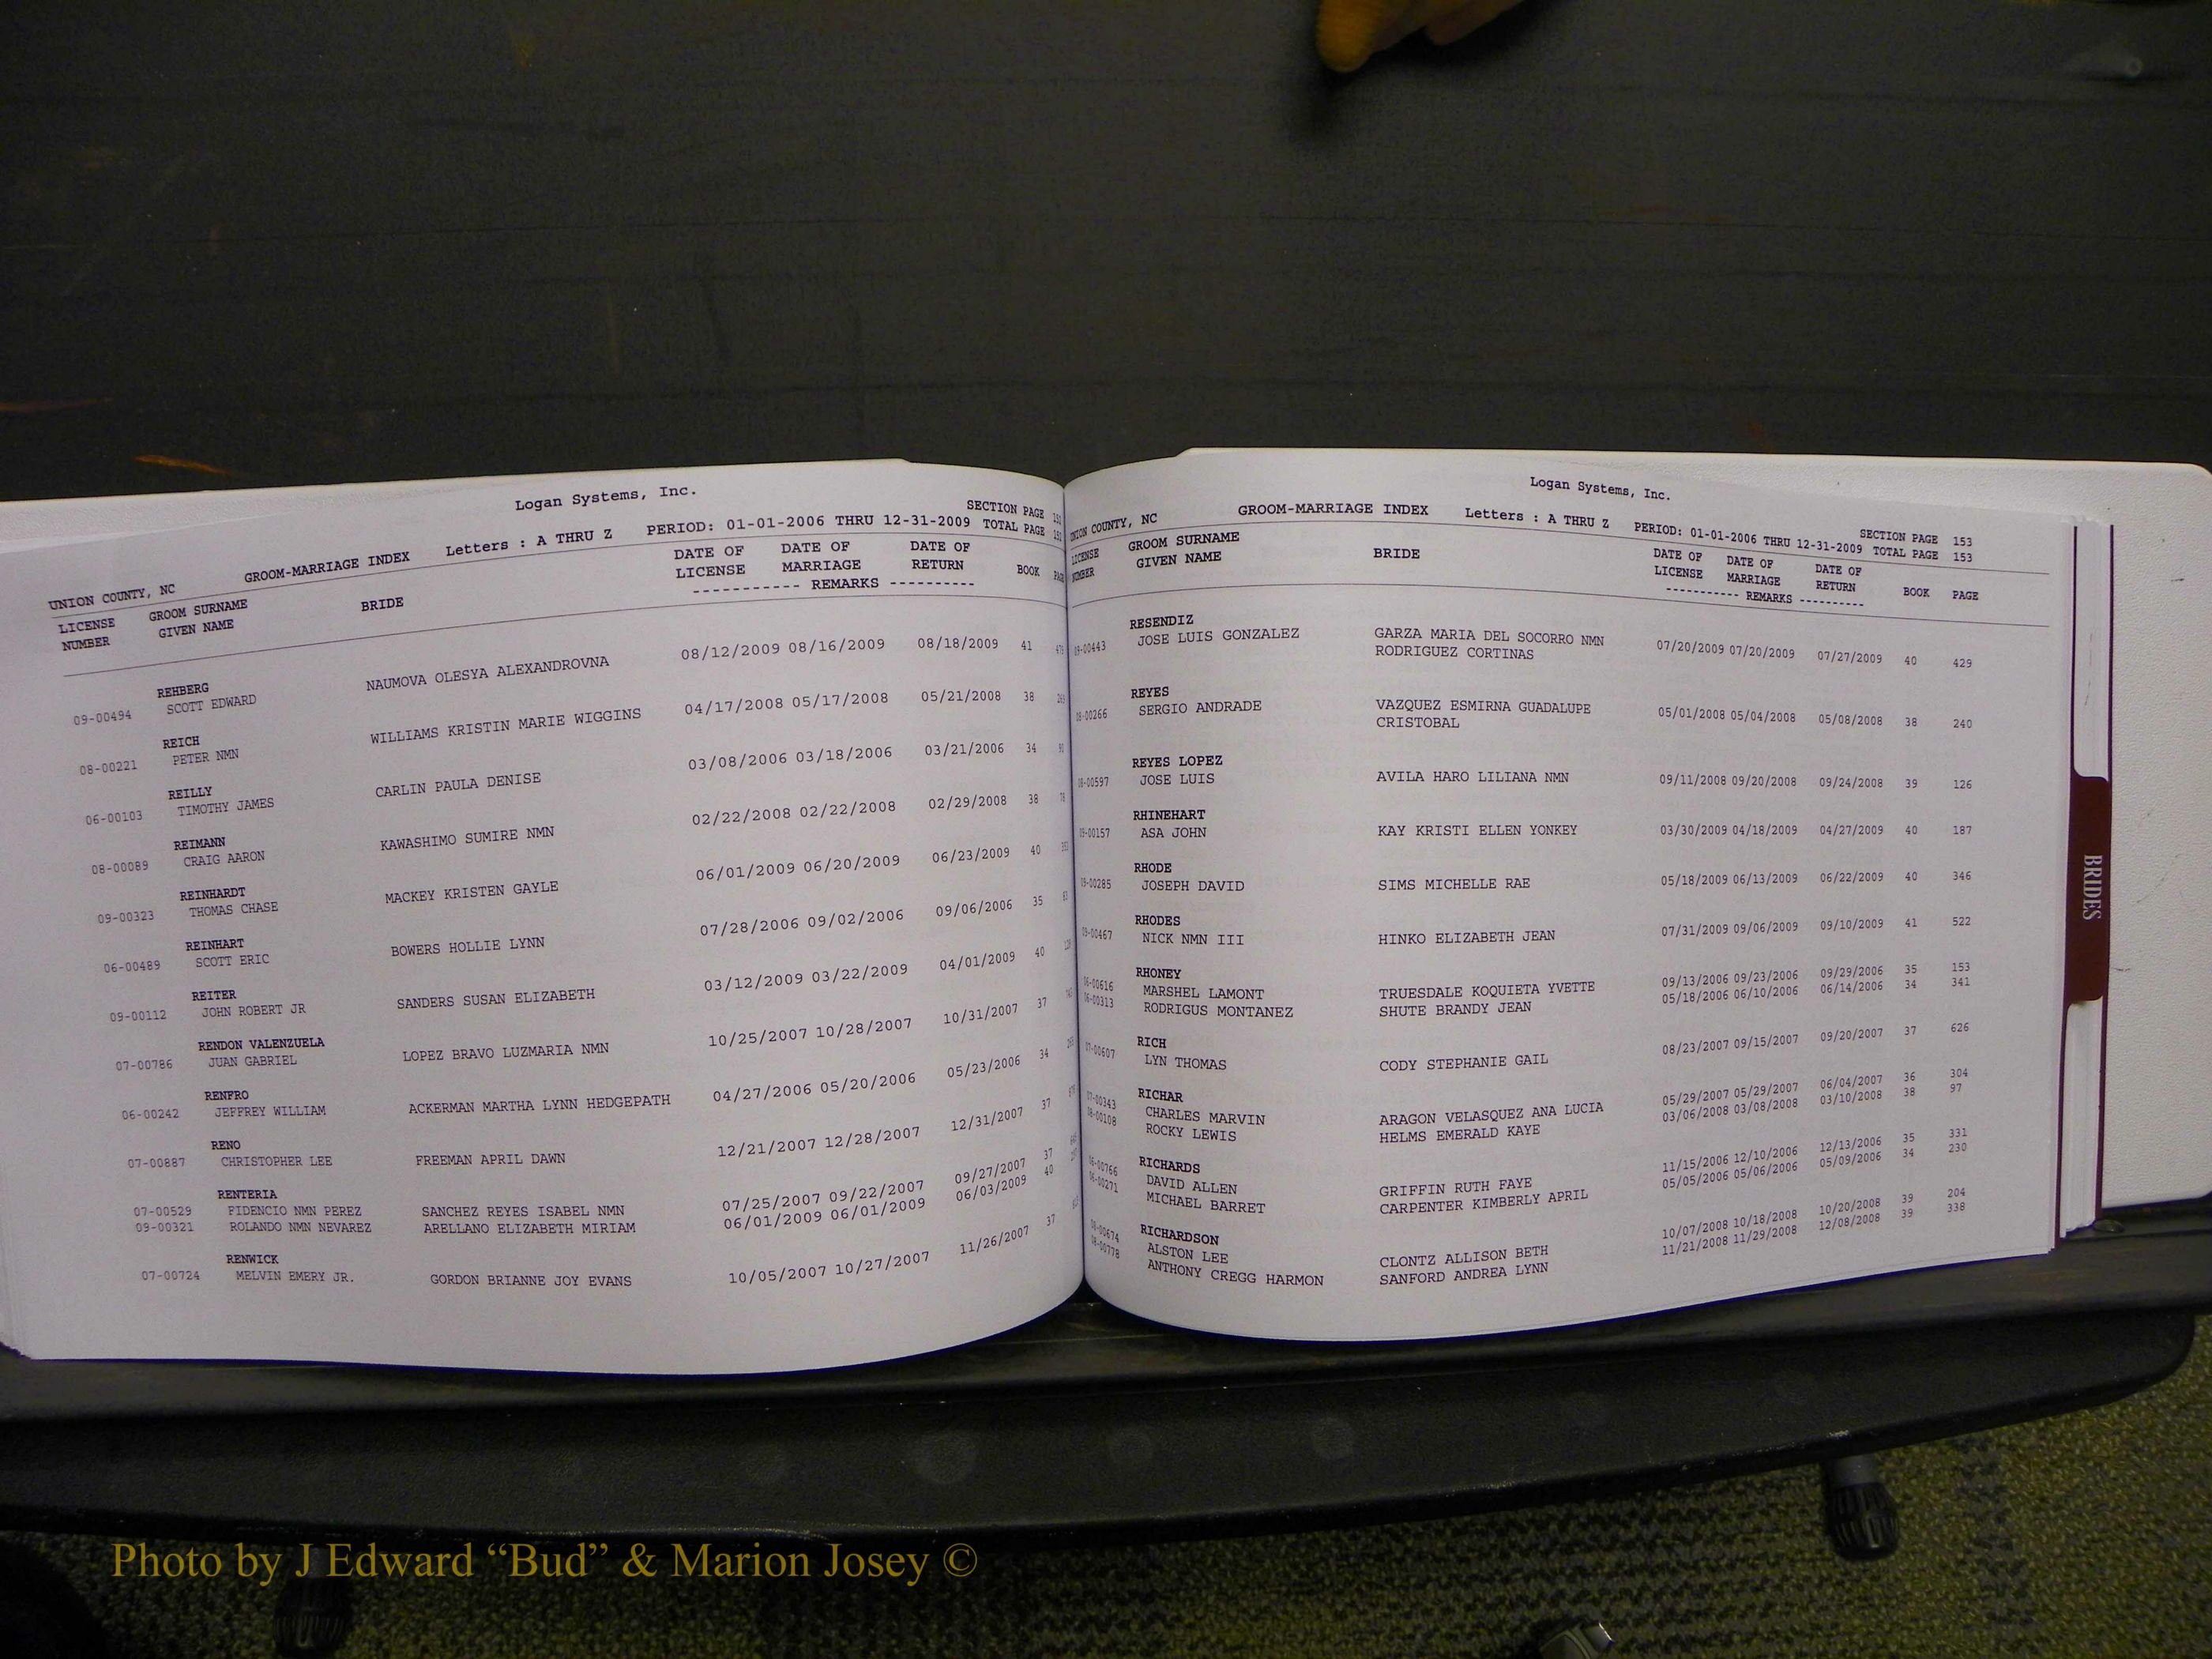 Logan Systems, Inc.
SECTION PAGE
UNION COUNTY, NC GROOM-MARRIAGE INDEX Letters : A THRU Z PERIOD: 01-01-2006 THRU 12-31-2009 TOTAL PAGE
LICENSE GROOM SURNAME BRIDE DATE OF DATE OF DATE OF
NUMBER GIVEN NAME LICENSE MARRIAGE RETURN BOOK
----------- REMARKS ----------
REHBERG
09-00494 SCOTT EDWARD NAUMOVA OLESYA ALEXANDROVNA 08/12/2009 08/16/2009 08/18/2009 41
REICH
08-00221 PETER NMN WILLIAMS KRISTIN MARIE WIGGINS 04/17/2008 05/17/2008 05/21/2008 38
REILLY
06-00103 TIMOTHY JAMES CARLIN PAULA DENISE 03/08/2006 03/18/2006 03/21/2006 34
REIMANN
08-00089 CRAIG AARON KAWASHIMO SUMIRE NMN 02/22/2008 02/22/2008 02/29/2008 38
REINHARDT
09-00323 THOMAS CHASE MACKEY KRISTEN GAYLE 06/01/2009 06/20/2009 06/23/2009 40
REINHART
06-00489 SCOTT ERIC BOWERS HOLLIE LYNN 07/28/2006 09/02/2006 09/06/2006 35
REITER
09-00112 JOHN ROBERT JR SANDERS SUSAN ELIZABETH 03/12/2009 03/22/2009 04/01/2009 40
RENDON VALENZUELA
07-00786 JUAN GABRIEL LOPEZ BRAVO LUZMARIA NMN 10/25/2007 10/28/2007 10/31/2007 37
RENFRO
06-00242 JEFFREY WILLIAM ACKERMAN MARTHA LYNN HEDGEPATH 04/27/2006 05/20/2006 05/23/2006 34
RENO
07-00887 CHRISTOPHER LEE FREEMAN APRIL DAWN 12/21/2007 12/28/2007 12/31/2007 37
RENTERIA
07-00529 FIDENCIO NMN PEREZ SANCHEZ REYES ISABEL NMN 07/25/2007 09/22/2007 09/27/2007 37
09-00321 ROLANDO NMN NEVAREZ ARELLANO ELIZABETH MIRIAM 06/01/2009 06/01/2009 06/03/2009 40
RENWICK
07-00724 MELVIN EMERY JR. GORDON BRIANNE JOY EVANS 10/05/2007 10/27/2007 11/26/2007 37
Logan Systems, Inc.
SECTION PAGE 153
UNION COUNTY, NC GROOM-MARRIAGE INDEX Letters : A THRU Z PERIOD: 01-01-2006 THRU 12-31-2009 TOTAL PAGE 153
LICENSE GROOM SURNAME BRIDE DATE OF DATE OF DATE OF
NUMBER GIVEN NAME LICENSE MARRIAGE RETURN BOOK PAGE
----------- REMARKS ----------
RESENDIZ
09-00443 JOSE LUIS GONZALEZ GARZA MARIA DEL SOCORRO NMN 07/20/2009 07/20/2009 07/27/2009 40 429
RODRIGUEZ CORTINAS
REYES
08-00266 SERGIO ANDRADE VAZQUEZ ESMIRNA GUADALUPE 05/01/2008 05/04/2008 05/08/2008 38 240
CRISTOBAL
REYES LOPEZ
08-00597 JOSE LUIS AVILA HARO LILIANA NMN 09/11/2008 09/20/2008 09/24/2008 39 126
RHINEHART
09-00157 ASA JOHN KAY KRISTI ELLEN YONKEY 03/30/2009 04/18/2009 04/27/2009 40 187
RHODE
09-00285 JOSEPH DAVID SIMS MICHELLE RAE 05/18/2009 06/13/2009 06/22/2009 40 346
RHODES
09-00467 NICK NMN III HINKO ELIZABETH JEAN 07/31/2009 09/06/2009 09/10/2009 41 522
RHONEY
06-00616 MARSHEL LAMONT TRUESDALE KOQUIETA YVETTE 09/13/2006 09/23/2006 09/29/2006 35 153
06-00313 RODRIGUS MONTANEZ SHUTE BRANDY JEAN 05/18/2006 06/10/2006 06/14/2006 34 341
RICH
07-00607 LYN THOMAS CODY STEPHANIE GAIL 08/23/2007 09/15/2007 09/20/2007 37 626
RICHAR
07-00343 CHARLES MARVIN ARAGON VELASQUEZ ANA LUCIA 05/29/2007 05/29/2007 06/04/2007 36 304
08-00108 ROCKY LEWIS HELMS EMERALD KAYE 03/06/2008 03/08/2008 03/10/2008 38 97
RICHARDS
06-00766 DAVID ALLEN GRIFFIN RUTH FAYE 11/15/2006 12/10/2006 12/13/2006 35 331
06-00271 MICHAEL BARRET CARPENTER KIMBERLY APRIL 05/05/2006 05/06/2006 05/09/2006 34 230
RICHARDSON
08-00674 ALSTON LEE CLONTZ ALLISON BETH 10/07/2008 10/18/2008 10/20/2008 39 204
08-00778 ANTHONY CREGG HARMON SANFORD ANDREA LYNN 11/21/2008 11/29/2008 12/08/2008 39 338
BRIDES
Photo by J Edward “Bud” & Marion Josey ©